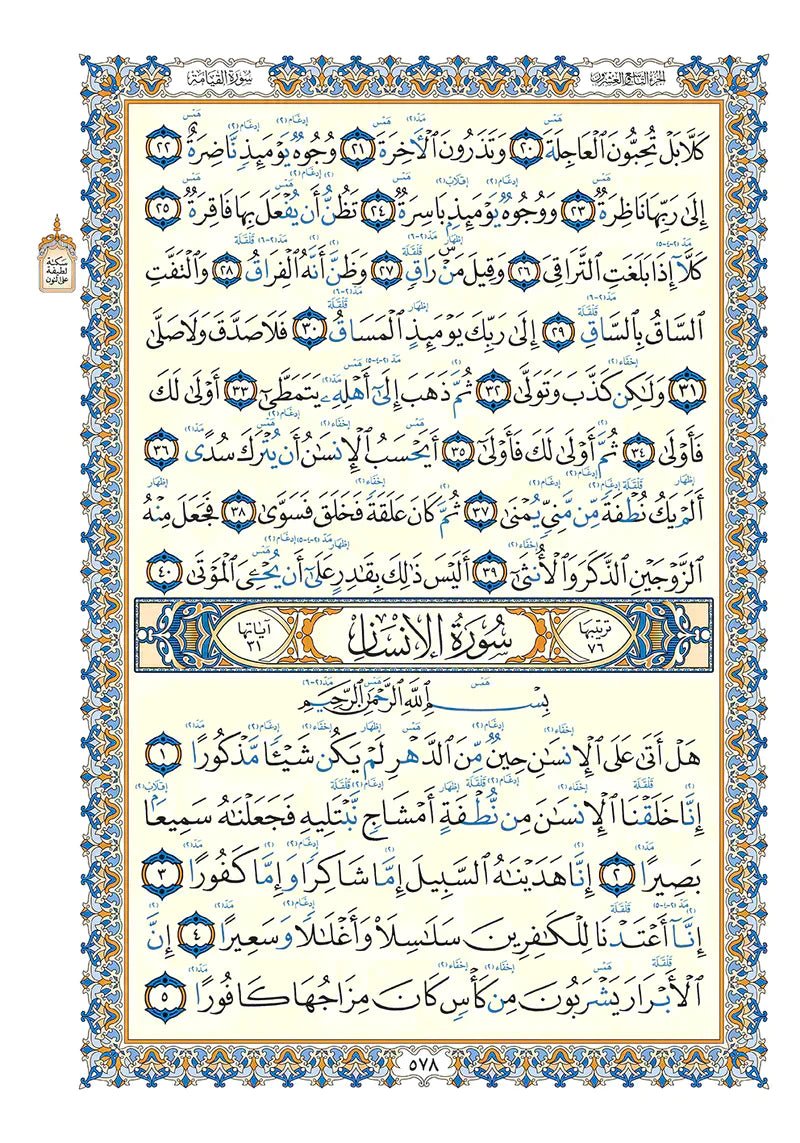 الجزء التاسع والعشرون
سورة القيامة
كَلَّا بَلْ تُحِبُّونَ ٱلْعَاجِلَةَ ٢٠ وَتَذَرُونَ ٱلْءَاخِرَةَ ٢١ وُجُوهٌ يَوْمَئِذٍ نَّاضِرَةٌ ٢٢
إِلَىٰ رَبِّهَا نَاظِرَةٌ ٢٣ وَوُجُوهٌ يَوْمَئِذٍۭ بَاسِرَةٌ ٢٤ تَظُنُّ أَن يُفْعَلَ بِهَا فَاقِرَةٌ ٢٥
سكتة
لطيفة
على النون
كَلَّآ إِذَا بَلَغَتِ ٱلتَّرَاقِىَ ٢٦ وَقِيلَ مَنْ ۜ رَاقٍ ٢٧ وَظَنَّ أَنَّهُ ٱلْفِرَاقُ ٢٨ وَٱلْتَفَّتِ
ٱلسَّاقُ بِٱلسَّاقِ ٢٩ إِلَىٰ رَبِّكَ يَوْمَئِذٍ ٱلْمَسَاقُ ٣٠ فَلَا صَدَّقَ وَلَا صَلَّىٰ
٣١ وَلَٰكِن كَذَّبَ وَتَوَلَّىٰ ٣٢ ثُمَّ ذَهَبَ إِلَىٰٓ أَهْلِهِۦ يَتَمَطَّىٰٓ ٣٣ أَوْلَىٰ لَكَ
فَأَوْلَىٰ ٣٤ ثُمَّ أَوْلَىٰ لَكَ فَأَوْلَىٰٓ ٣٥ أَيَحْسَبُ ٱلْإِنسَٰنُ أَن يُتْرَكَ سُدًى ٣٦
أَلَمْ يَكُ نُطْفَةً مِّن مَّنِىٍّ يُمْنَىٰ ٣٧ ثُمَّ كَانَ عَلَقَةً فَخَلَقَ فَسَوَّىٰ ٣٨ فَجَعَلَ مِنْهُ
ٱلزَّوْجَيْنِ ٱلذَّكَرَ وَٱلْأُنثَىٰٓ ٣٩ أَلَيْسَ ذَٰلِكَ بِقَٰدِرٍ عَلَىٰٓ أَن يُحْـِۧىَ ٱلْمَوْتَىٰ ٤٠
ترتيبها ٧٦ سُورَةُ الإِنسَانِ آياتها ٣١
بِسْمِ ٱللَّهِ ٱلرَّحْمَٰنِ ٱلرَّحِيمِ
هَلْ أَتَىٰ عَلَى ٱلْإِنسَٰنِ حِينٌ مِّنَ ٱلدَّهْرِ لَمْ يَكُن شَيْـًٔا مَّذْكُورًا ١
إِنَّا خَلَقْنَا ٱلْإِنسَٰنَ مِن نُّطْفَةٍ أَمْشَاجٍ نَّبْتَلِيهِ فَجَعَلْنَٰهُ سَمِيعًۢا
بَصِيرًا ٢ إِنَّا هَدَيْنَٰهُ ٱلسَّبِيلَ إِمَّا شَاكِرًا وَإِمَّا كَفُورًا ٣
إِنَّآ أَعْتَدْنَا لِلْكَٰفِرِينَ سَلَٰسِلَا۟ وَأَغْلَٰلًا وَسَعِيرًا ٤ إِنَّ
ٱلْأَبْرَارَ يَشْرَبُونَ مِن كَأْسٍ كَانَ مِزَاجُهَا كَافُورًا ٥
٥٧٨